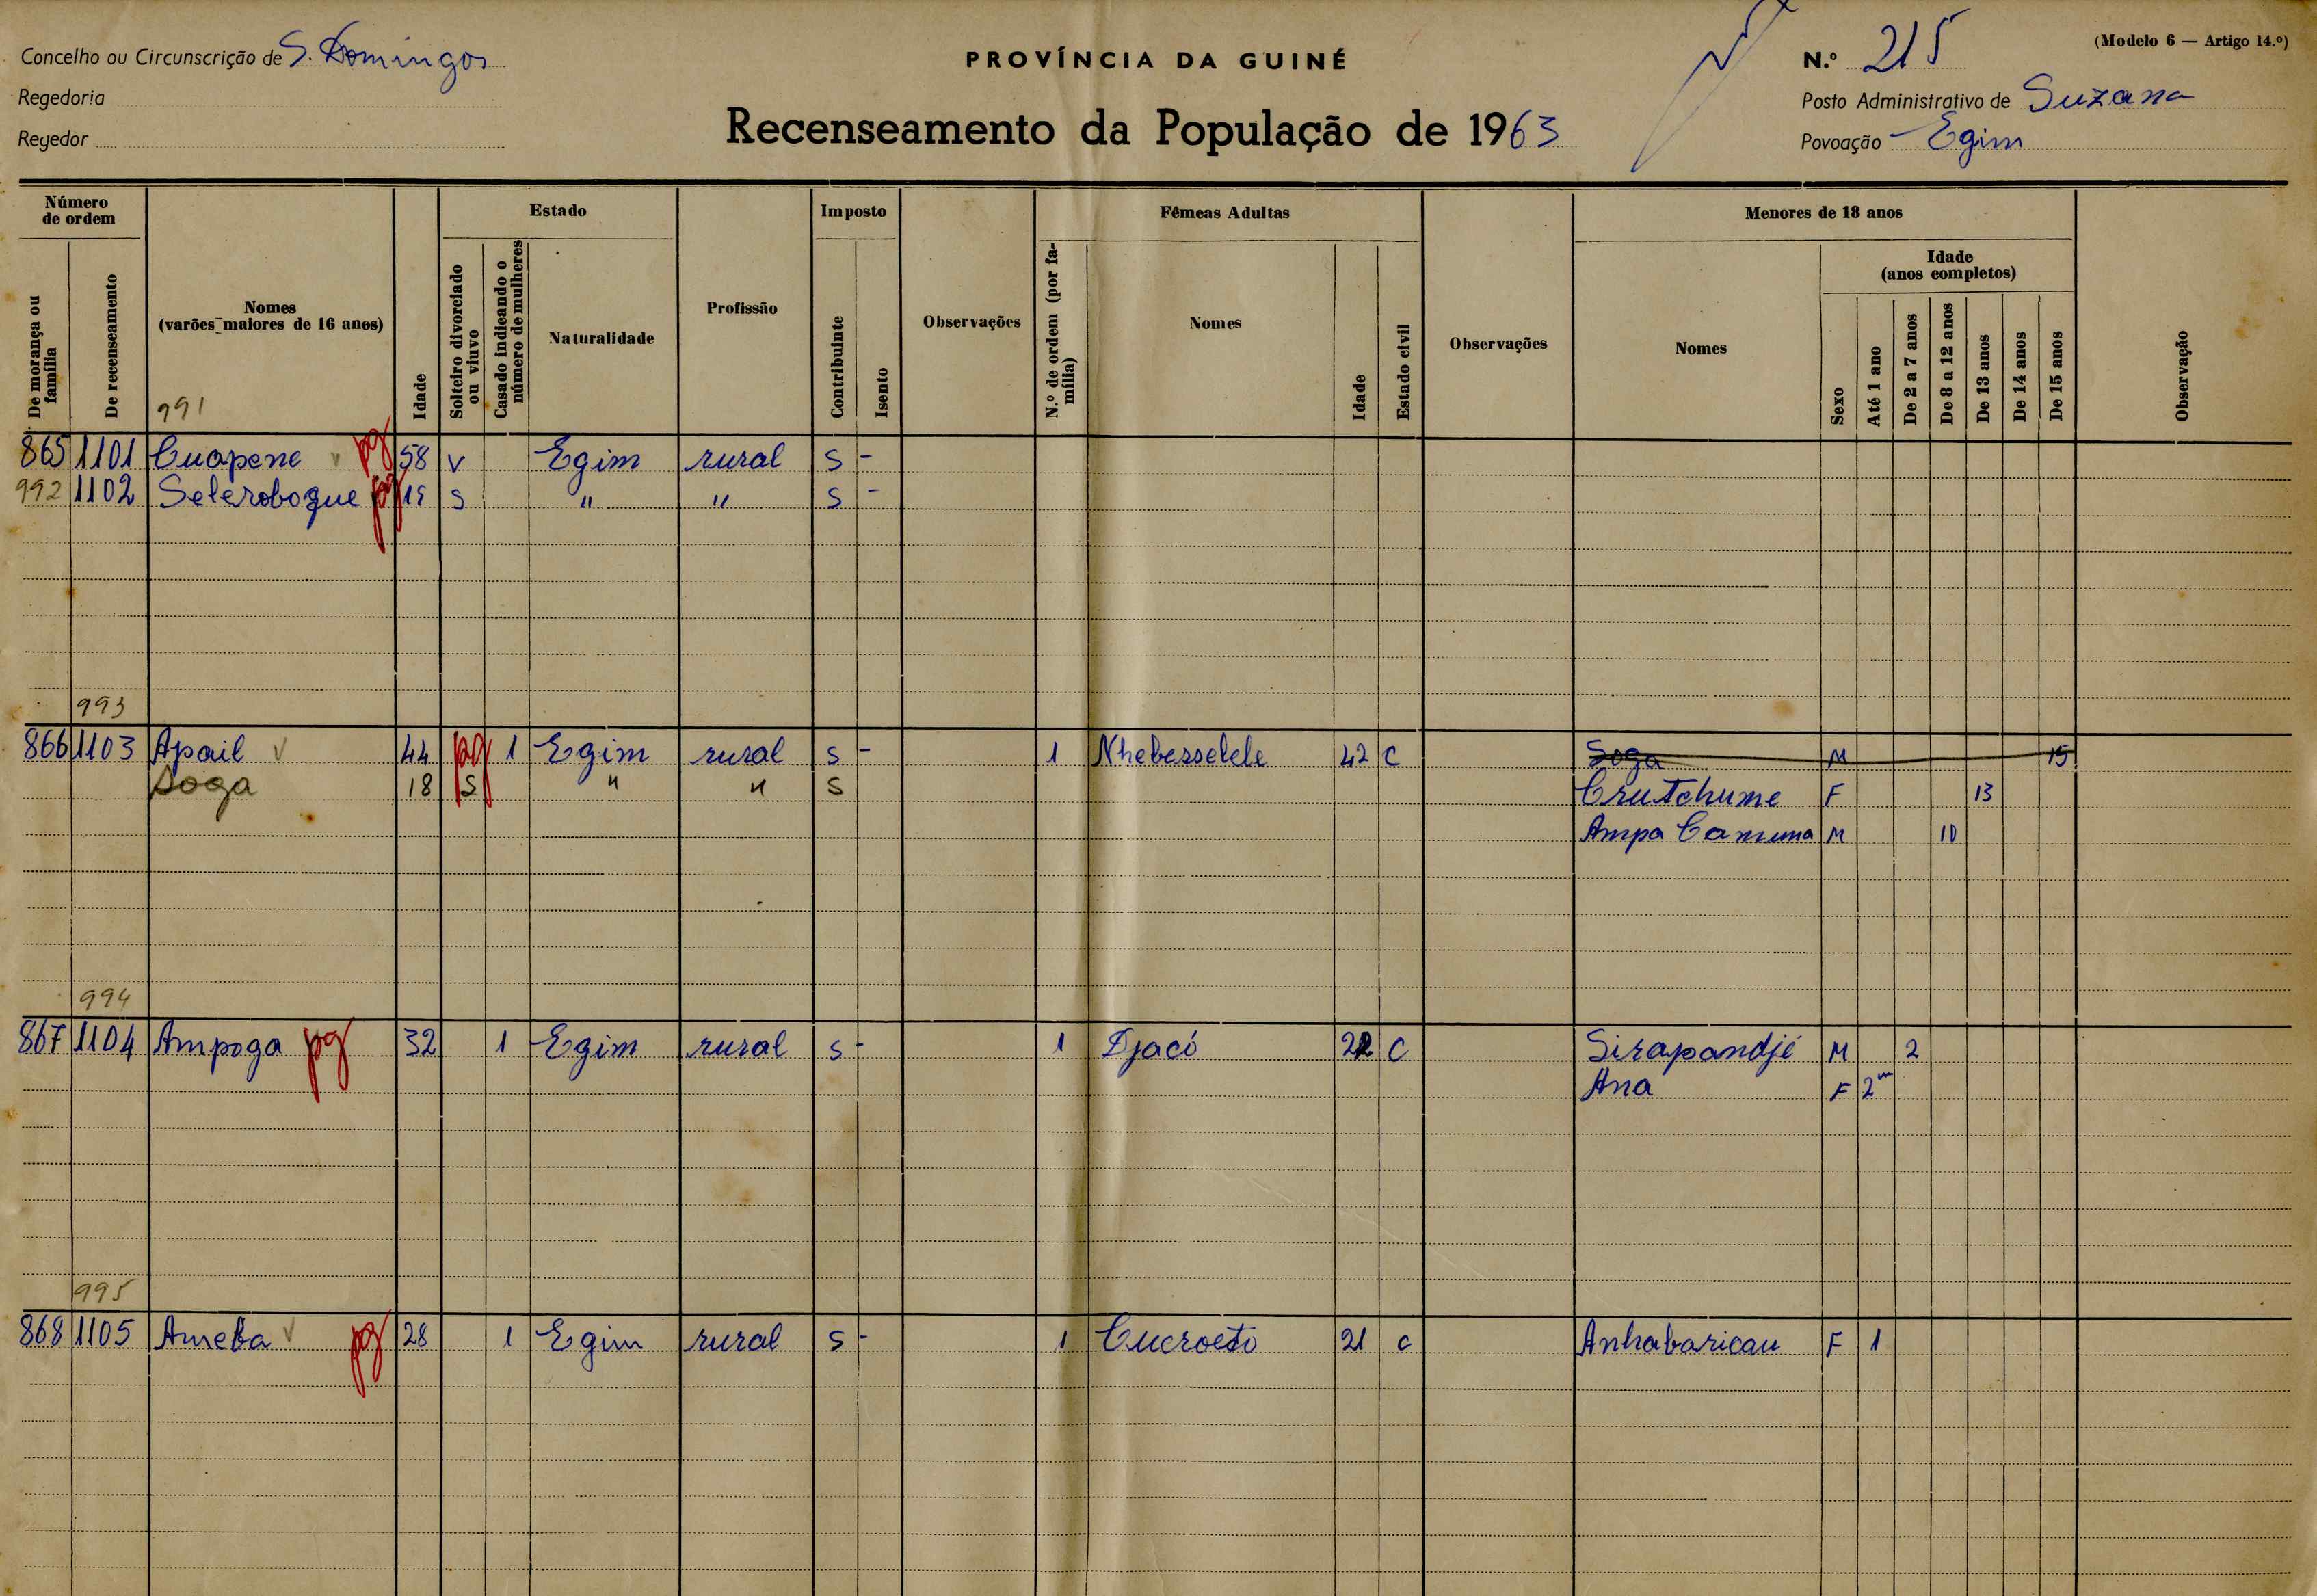 Concelho ou Circunscrição de S. Domingos
Regedoria
Regedor
PROVÍNCIA DA GUINÉ
Recenseamento da População de 1963
(Modelo 6 — Artigo 14.º)
N.º 215
Posto Administrativo de Suzana
Povoação Egim
Número de ordem
De morança ou família
De recenseamento
Nomes (varões maiores de 16 anos)
991
Idade
Estado
Solteiro divorciado ou viuvo
Casado indicando o número de mulheres
Naturalidade
Profissão
Imposto
Contribuinte
Isento
Observações
Fêmeas Adultas
N.º de ordem (por família)
Nomes
Idade
Estado civil
Observações
Menores de 18 anos
Nomes
Sexo
Idade (anos completos)
Até 1 ano
De 2 a 7 anos
De 8 a 12 anos
De 13 anos
De 14 anos
De 15 anos
Observação
865 1101 Cuapene v pg 58 v Egim rural S -
992 1102 Seleroboque pg 19 S " " S -
993
866 1103 Apail v 44 pg 1 Egim rural S - 1 Nhebesselele 42 C Soga M 15
Soga 18 S " " S Crutchume F 13
Ampa Camuna M 10
994
867 1104 Ampoga pg 32 1 Egim rural S - 1 Djacó 22 C Sirapandjé M 2
Ana F 2m
995
868 1105 Ameba v pg 28 1 Egim rural S - 1 Cucroeto 21 C Anhabaricau F 1